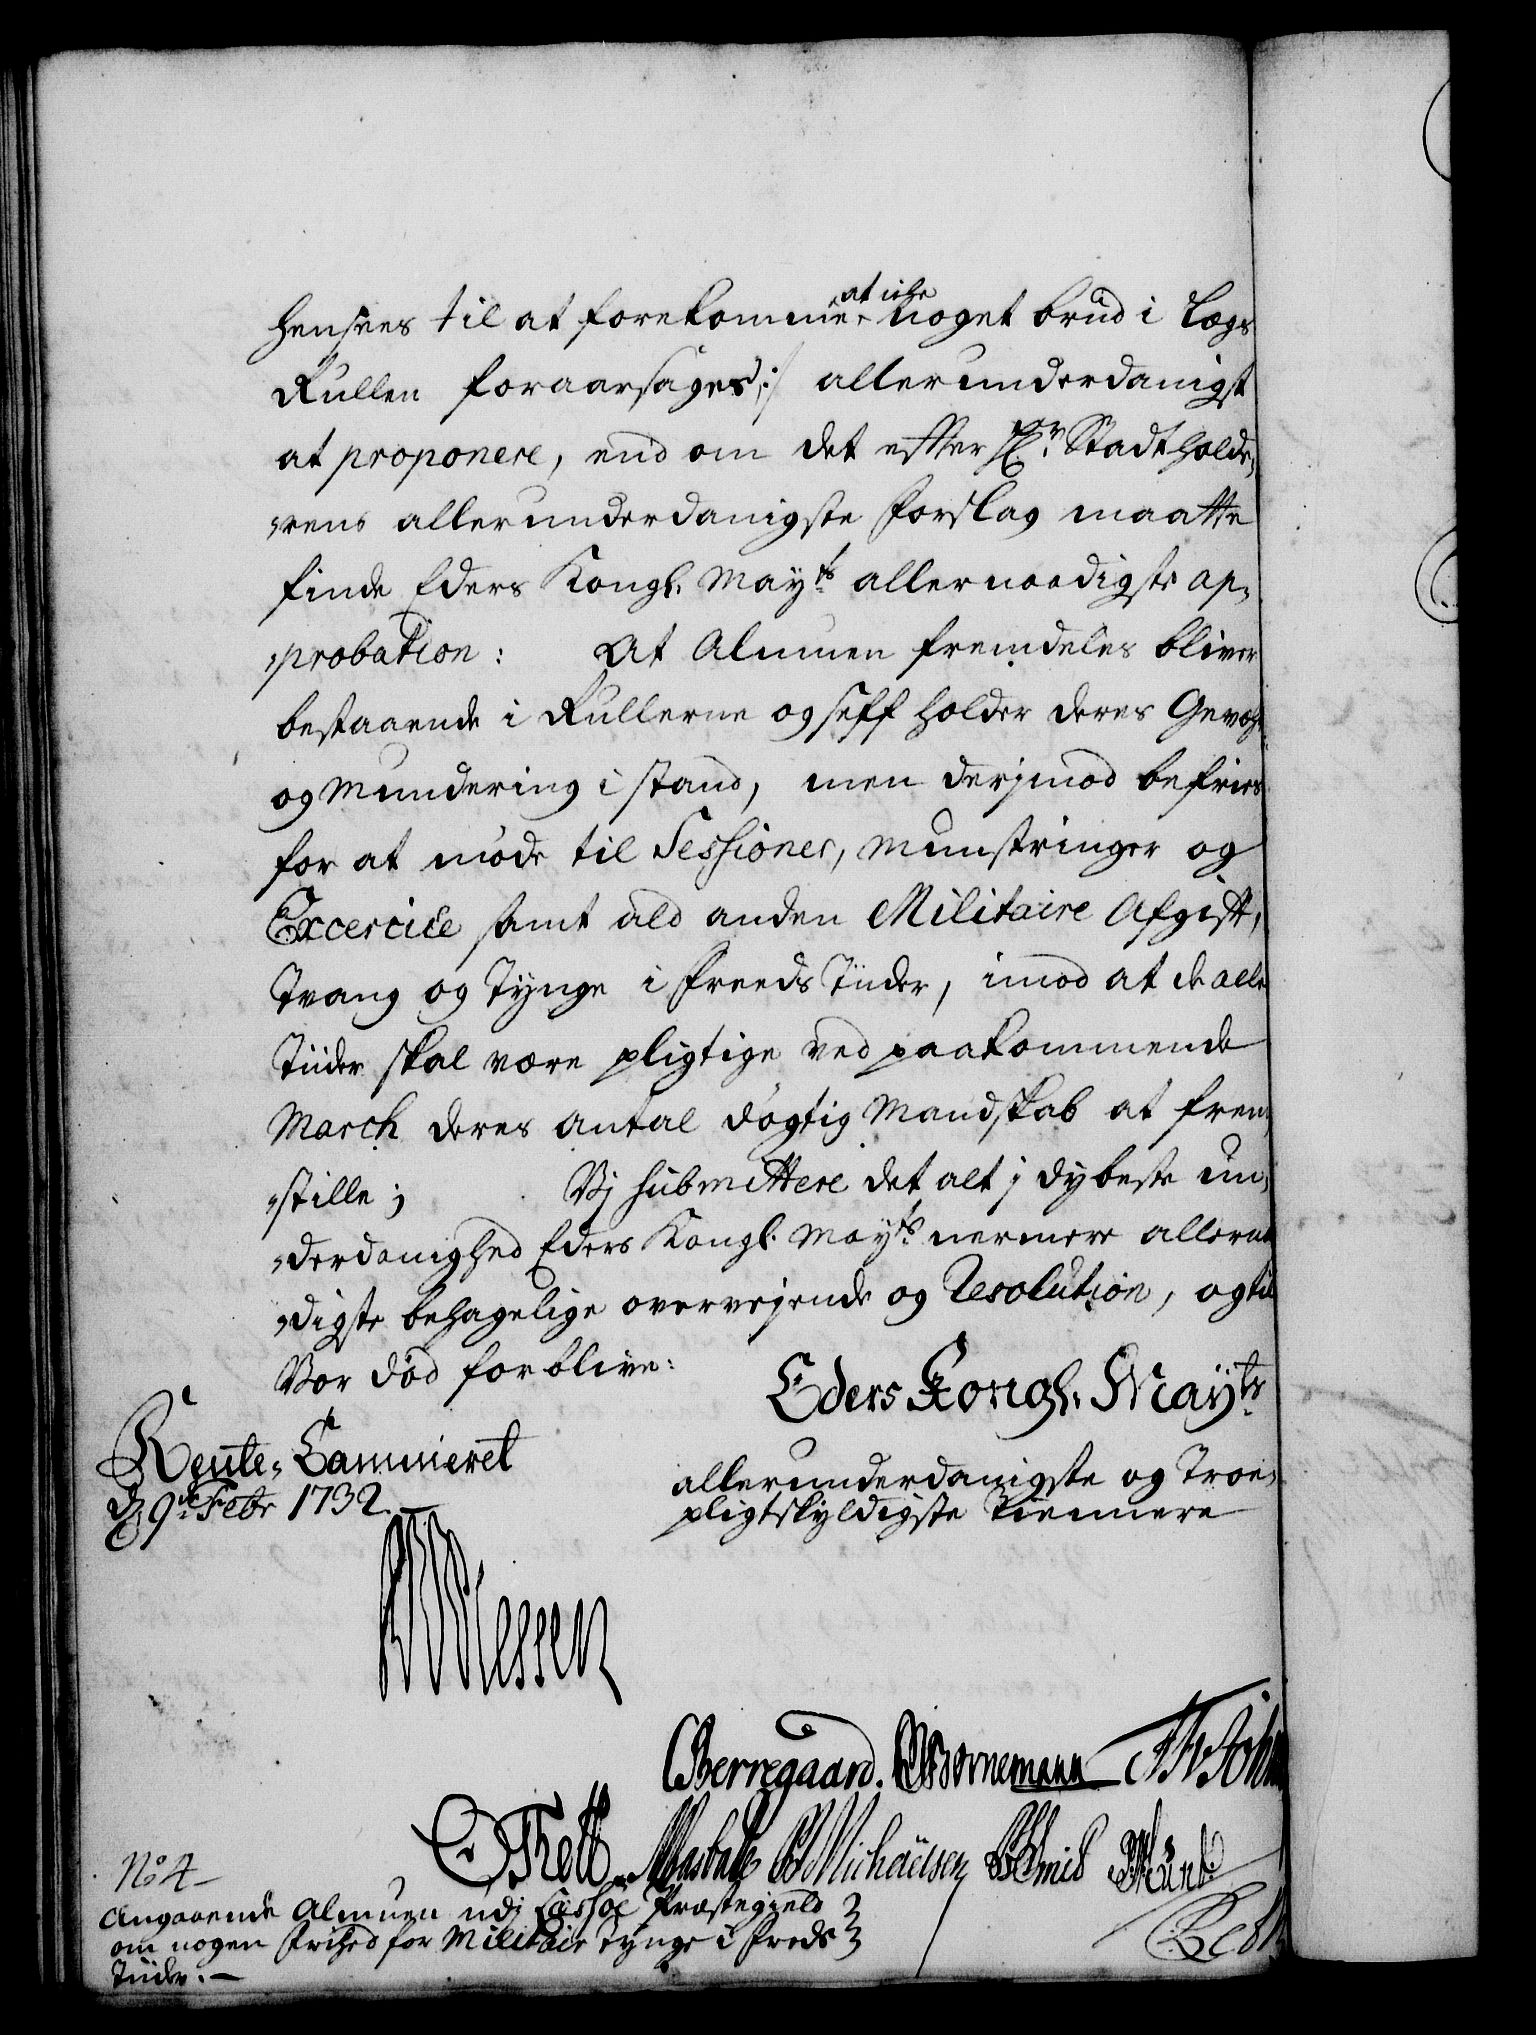 hensees til at forekomme at iche noget brud i Lægs
Rullen foraarsages :/ allerunderdanigst
at proponere, end om det efter Hr. Stadtholde,
,rens allerunderdanigste forslag maatte
finde Eders Kongl. Mayts allernaadigste ap,
,probation : At Almuen fremdeles bliver
bestaaende i Rullerne og self holder deres Gevæhr
og Mundering i stand, men derjmod befries
for at møde til Sessioner, Munstringer og
Excercice samt ald anden Militaire Afgift,
Tvang og Tynge i freeds Tiider, imod at de alle
Tiider skal være pligtige ved paakommende
March deres antal dógtig Mandskab at frem,
,stille ; Vj submittere det alt j dybeste un,
,derdanighed Eders Kongl. Mayts nermere allernaa
,digste behagelige overvejende og Resolution, og til
Vor død forblive:
Eders Kongl. Mayts
allerunderdanigste og Troe,
pligtskyldigste Tiennere
Rente, Cammeret
d. 9de Febr 1732.
Berregaard. Bornemann
Michaelsen
No 4
Angaaende Almuen udj Lessøe Præstegield
om nogen frihed for Militair Tynge i freds
Tiider. —